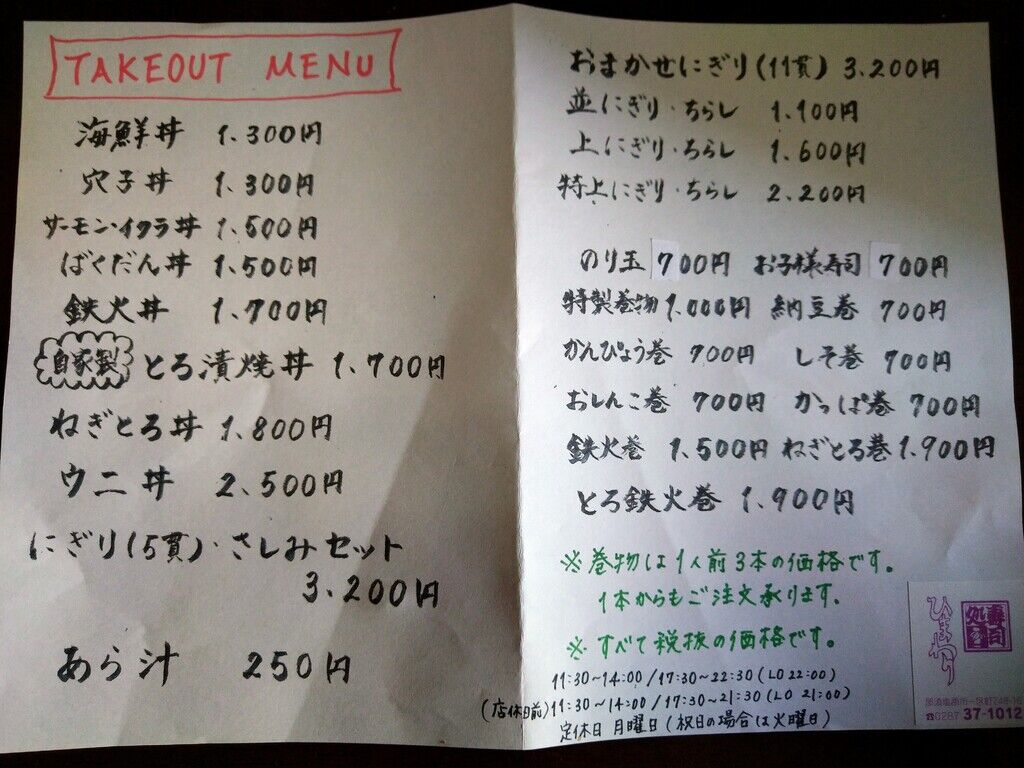 TAKEOUT MENU
海鮮丼 1.300円
穴子丼 1.300円
サーモン・イクラ丼 1.500円
ばくだん丼 1.500円
鉄火丼 1.700円
自家製 とろ漬焼丼 1.700円
ねぎとろ丼 1.800円
ウニ丼 2.500円
にぎり(5貫)・さしみセット
3.200円
あら汁 250円
おまかせにぎり(11貫) 3.200円
並にぎり・ちらし 1.100円
上にぎり・ちらし 1.600円
特上にぎり・ちらし 2.200円
のり玉 700円 お子様寿司 700円
特製巻物 1.000円 納豆巻 700円
かんぴょう巻 700円 しそ巻 700円
おしんこ巻 700円 かっぱ巻 700円
鉄火巻 1.500円 ねぎとろ巻 1.900円
とろ鉄火巻 1.900円
※巻物は1人前3本の価格です。
1本からもご注文承ります。
※すべて税抜の価格です。
11:30~14:00/17:30~22:30(LO 22:00)
(店休日前)11:30~14:00/17:30~21:30(LO 21:00)
定休日 月曜日(祝日の場合は火曜日)
寿司処
ひまわり
☎0287 37-1012